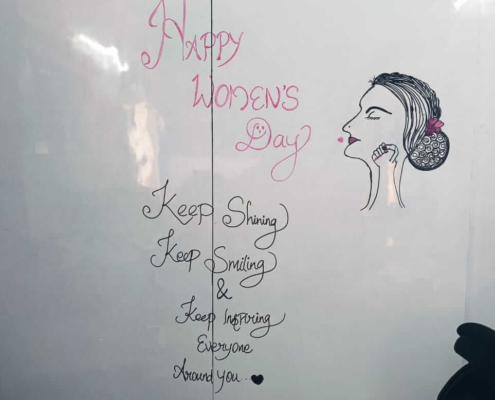 Happy
Women's
Day
Keep Shining
Keep Smiling
&
Keep Inspiring
Everyone
Around you...